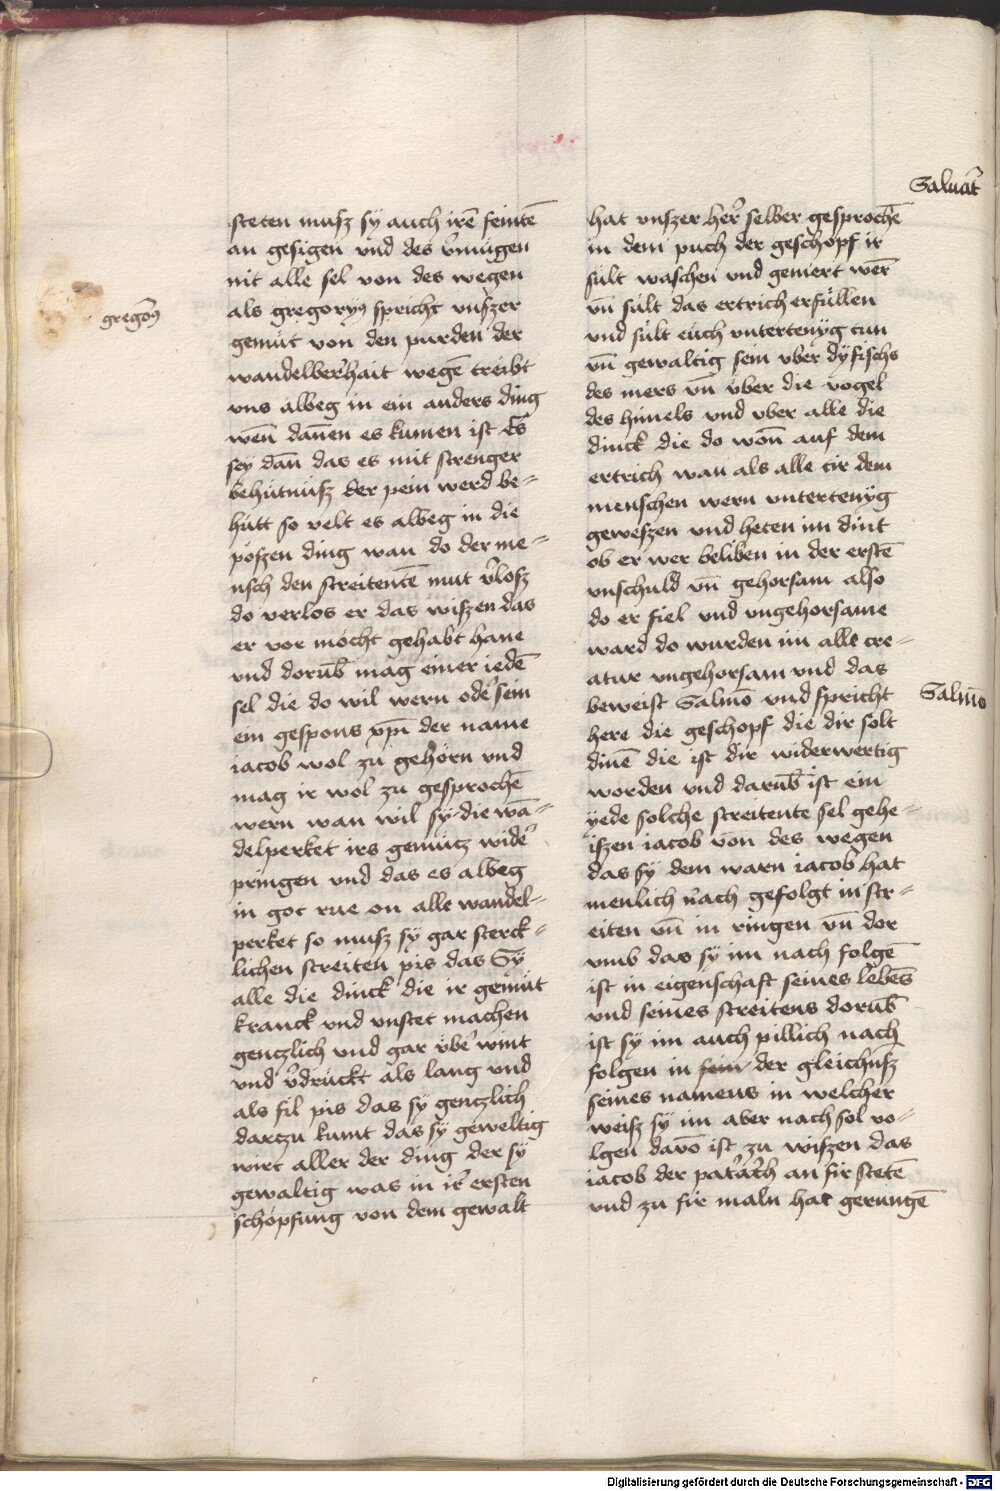 steten musz sy auch irē feintē
an gesigen vnd des v̄mügen
nit alle sel von des wegen
als gregoryꝰ spricht vnszer
gemüt von den purden der
wandelber̄hait wegē treibt
vns albeg in ein anders ding
wen̄ dan̄en es kumen ist Es
sey dan̄ das es mit strenger
behütnüsz der pein werd be-
hütt so velt es albeg in die
pöszen ding wan do der me-
nsch den streitentē mut v̄losz
do verlos er das wiszen das
er vor möcht gehabt hane
vnd dorūb mag einer iedē
sel die do wil wern oder̄ sein
ein gespons xp̄i der name
iacob wol zu gehörn vnd
mag ir wol zu gesprochē
wern wan wil sy die wā-
delperket irs gemütz wider̄
pringen vnd das es albeg
in got rue on alle wandel-
perket so musz sy gar sterck-
lichen streiten pis das Sy
alle die dinck die ir gemüt
kranck vnd vnstet machen
gentzlich vnd gar vber̄ wint
vnd v̄drückt als lang vnd
als fil pis das sy gentzlich
dartzu kumt das sy geweltig
wirt aller der ding der sy
gewaltig was in ir̄ ersten
schöpfung von dem gewalt
gregoꝰ
Saluat̄
hat vnszer her̄ selber gesprochē
in dem puch der geschopf ir
sült waschen vnd gemert wer̄
vn̄ sült das ertrich erfüllen
vnd sült euch vntertenÿg tun
vn̄ gewaltig sein vber dÿ fischs
des mers vn̄ vber die vogel
des himels vnd vber alle die
dinck die do won̄ auf dem
ertrich wan als alle tir dem
menschen wern vntertenÿg
geweszen vnd heten im dint
ob er wer beliben in der erstē
vnschuld vn̄ gehorsam also
do er fiel vnd vngehorsame
ward do wurden im alle cre-
atur vngehorsam vnd das
beweist Salmō vnd spricht
here die geschopf die dir solt
dinē die ist dir widerwertig
worden vnd darūb ist ein
yede solche streitente sel gehe-
iszen iacob von des wegen
das sy dem warn iacob hat
menlich nach gefolgt in str-
eiten vn̄ in ringen vn̄ dor
vmb das sy im nach folgē
ist in eigenschaft seines lebēs
vnd seines streitens dorūb
ist sy im auch pillich nach
folgen in sein der gleichnisz
seines namens in welcher
weisz sy im aber nach sol vo-
lgen davō ist zu wiszen das
iacob der pat̄ar̄ch an fir stetē
vnd zu fir maln hat gerungē
Salm̄o
Digitalisierung gefördert durch die Deutsche Forschungsgemeinschaft - DFG